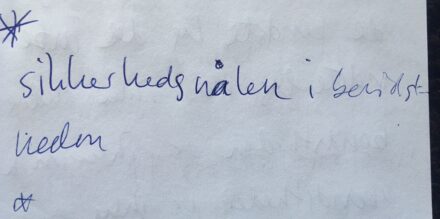 *
sikkerhedsnålen i bevidst-
heden
*